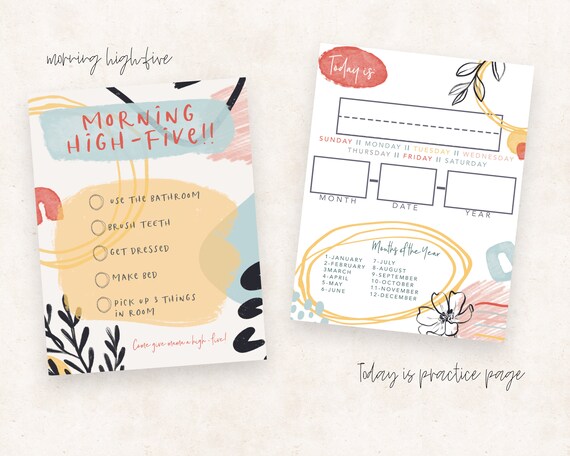 morning high-five
MORNING
HIGH-FIVE!!
USE THE BATHROOM
BRUSH TEETH
GET DRESSED
MAKE BED
PICK UP 3 THINGS
IN ROOM
Come give mama a high-five!
Today is:
SUNDAY || MONDAY || TUESDAY || WEDNESDAY
THURSDAY || FRIDAY || SATURDAY
MONTH
DATE
YEAR
Months of the Year
1-JANUARY
2-FEBRUARY
3MARCH
4-APRIL
5-MAY
6-JUNE
7-JULY
8-AUGUST
9-SEPTEMBER
10-OCTOBER
11-NOVEMBER
12-DECEMBER
Today is practice page